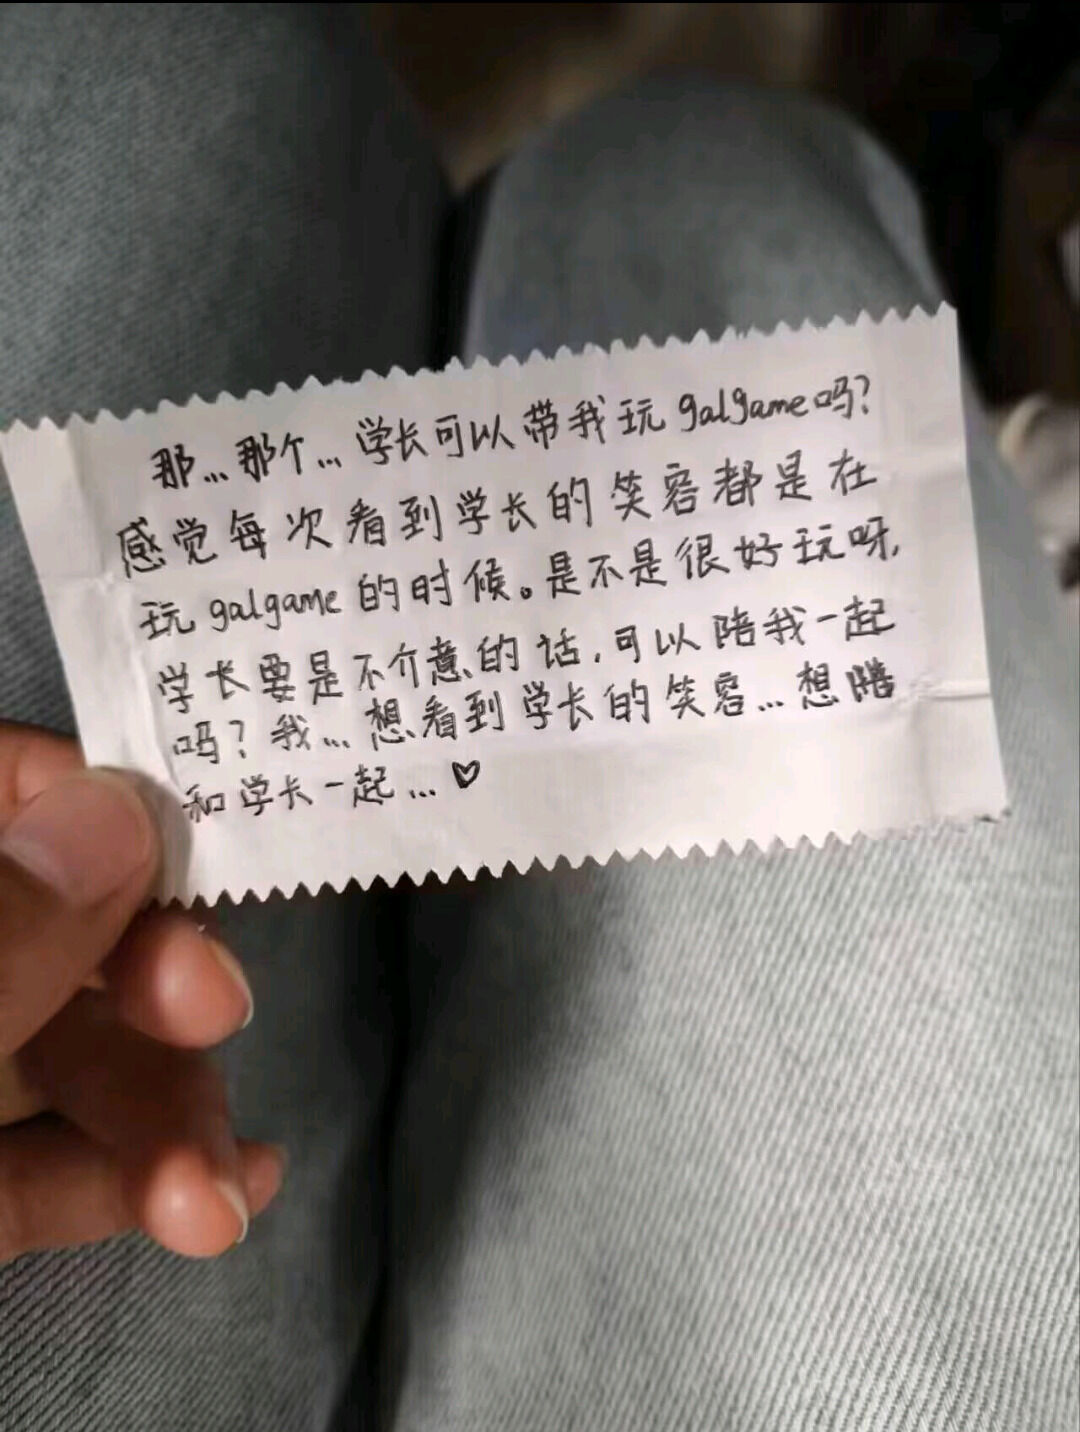 那...那个...学长可以带我玩galgame吗?
感觉每次看到学长的笑容都是在
玩galgame的时候。是不是很好玩呀,
学长要是不介意的话,可以陪我一起
吗?我...想看到学长的笑容...想
和学长一起...♡